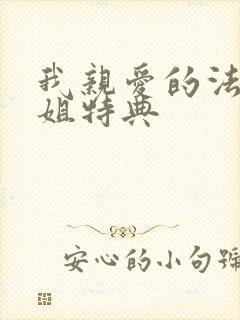 我親愛的法
姐特典
安心的小句號